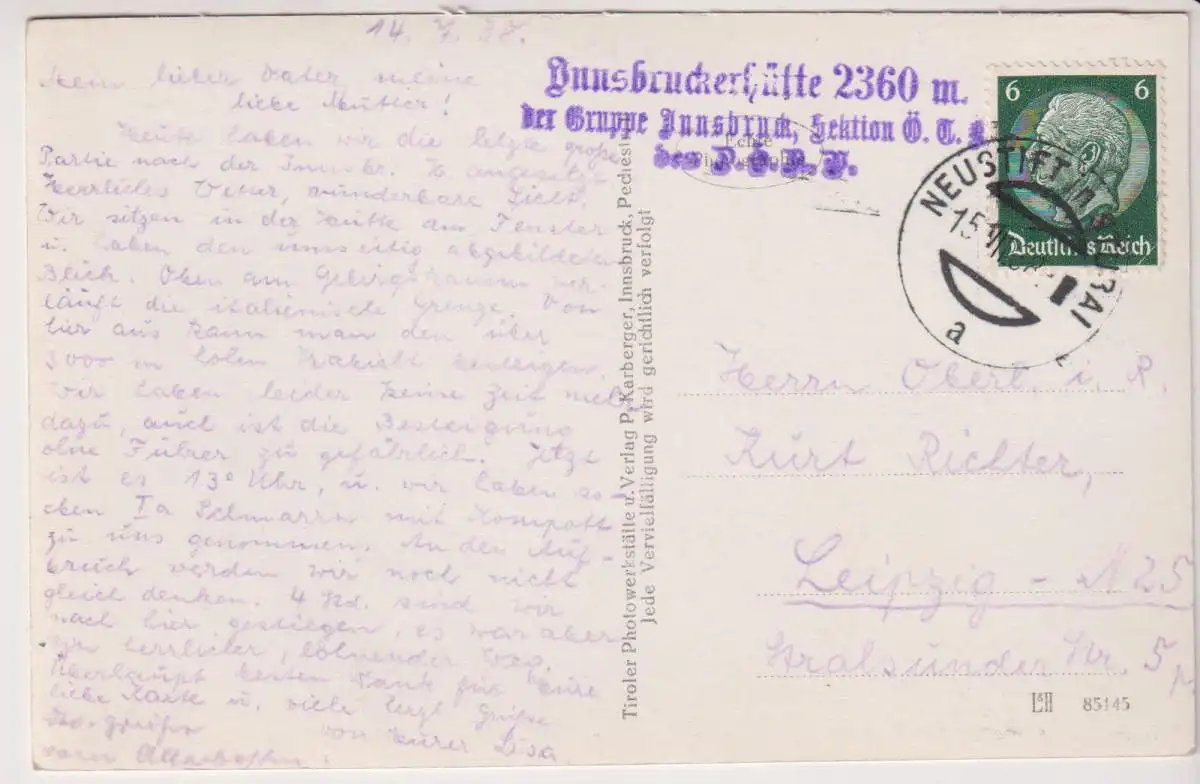 14. 7. 38.
Mein lieber Vater meine
liebe Mutter!
Heute haben wir die letzte große
Partie nach der Innsbr. H. angesetzt
Herrliches Wetter, wunderbare Sicht.
Wir sitzen in der Hütte am Fenster
u. haben den umseitig abgebildeten
Blick. Oben am Gebirgskamm ver-
läuft die italienische Grenze. Von
hier aus kann man den über
3000 m hohen Habicht besteigen.
Wir haben leider keine Zeit mehr
dazu, auch ist die Besteigung
ohne Führer zu gefährlich. Jetzt
ist es 13° Uhr, u. wir haben so-
eben Ia Schmarrn mit Kompott
zu uns genommen. An den Auf-
bruch werden wir noch nicht
gleich denken. 4 Std. sind wir
nach hier gestiegen, es war aber
herrlicher, lohnender Weg.
Überhaupt besten Dank für Eure
liebe Karte u. viele herzl. Grüße
von Eurer Lisa
Innsbruckerhütte 2360 m.
der Gruppe Innsbruck, Sektion Ö. T. K.
des D.
Echte
6 6
Deutsches Reich
NEUSTIFT IM STUBAI
15.VII.38
a
Tiroler Photowerkstätte u. Verlag P. Karberger, Innsbruck, Pedie
Jede Vervielfältigung wird gerichtlich verfolgt
Herrn Oberl. i. R.
Kurt Richter,
Leipzig - N 25
Stralsunder Str. 5
L&H 85145